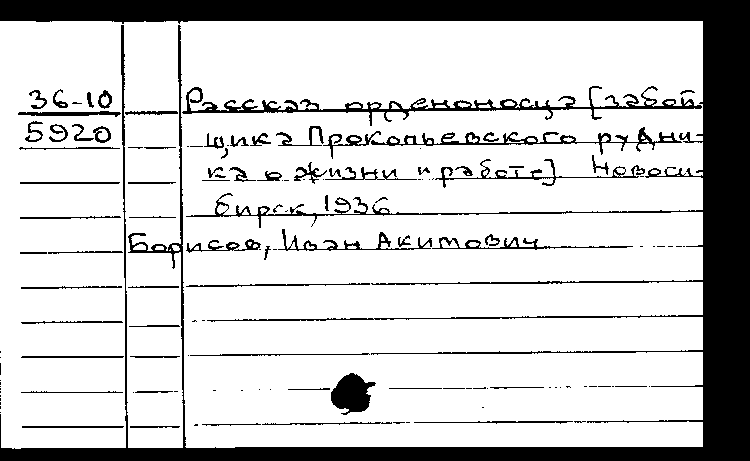 36-10
5920
Рассказ орденоносца [забой-
щика Прокопьевского рудни-
ка о жизни и работе] Новоси-
бирск, 1936.
Борисов, Иван Акимович